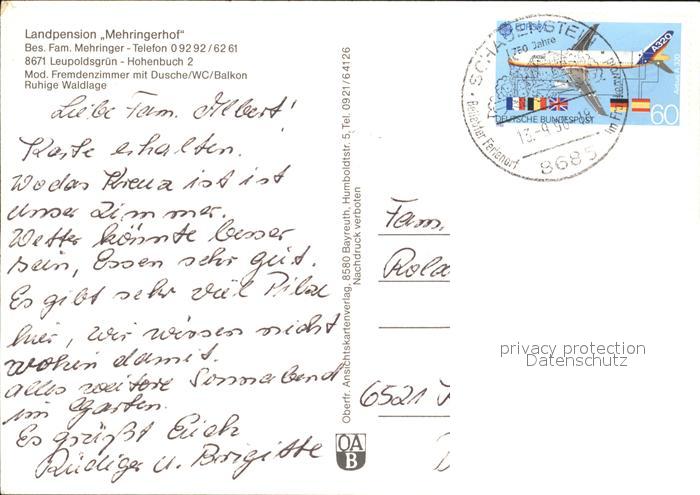 Landpension „Mehringerhof"
Bes. Fam. Mehringer - Telefon 0 92 92 / 62 61
8671 Leupoldsgrün - Hohenbuch 2
Mod. Fremdenzimmer mit Dusche/WC/Balkon
Ruhige Waldlage
Liebe Fam. Albert!
Karte erhalten.
Wo das Kreuz ist ist
unser Zimmer.
Wetter könnte besser
sein, Essen sehr gut.
Es gibt sehr viel Pilze
hier, wir wissen nicht
wohin damit.
alles weitere Sonnabend
im Garten.
Es grüßt Euch
Rüdiger u. Brigitte
Oberfr. Ansichtskartenverlag, 8580 Bayreuth, Humboldtstr. 5, Tel. 0921/64126
Nachdruck verboten
OA
B
SCHAUENSTEIN
750 Jahre
Beliebter Ferienort
im
8685
EUROPA
A320
Airbus A 320
DEUTSCHE BUNDESPOST
60
Fam.
Rola
6521
privacy protection
Datenschutz